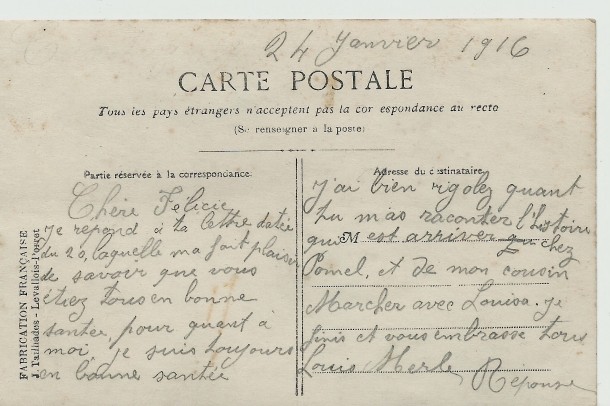 24 Janvier 1916
CARTE POSTALE
Tous les pays étrangers n'acceptent pas la cor espondance au recto
(Se renseigner à la poste)
Partie réservée à la correspondance.
Chère Félicie
je repond à ta lettre datée
du 20, laquelle ma fait plaisir
de savoir que vous
étiez tous en bonne
santée, pour quant à
moi, je suis toujours
en bonne santée
Adresse du destinataire
J'ai bien rigolez quant
tu m'as raconter l'histoire
qui M est arriver chez
Pomel, et de mon cousin
Marcher avec Louisa. je
finis et vous embrasse tous
Louis Merle Reponse
FABRICATION FRANÇAISE
J. Tailhades - Levallois-Perret